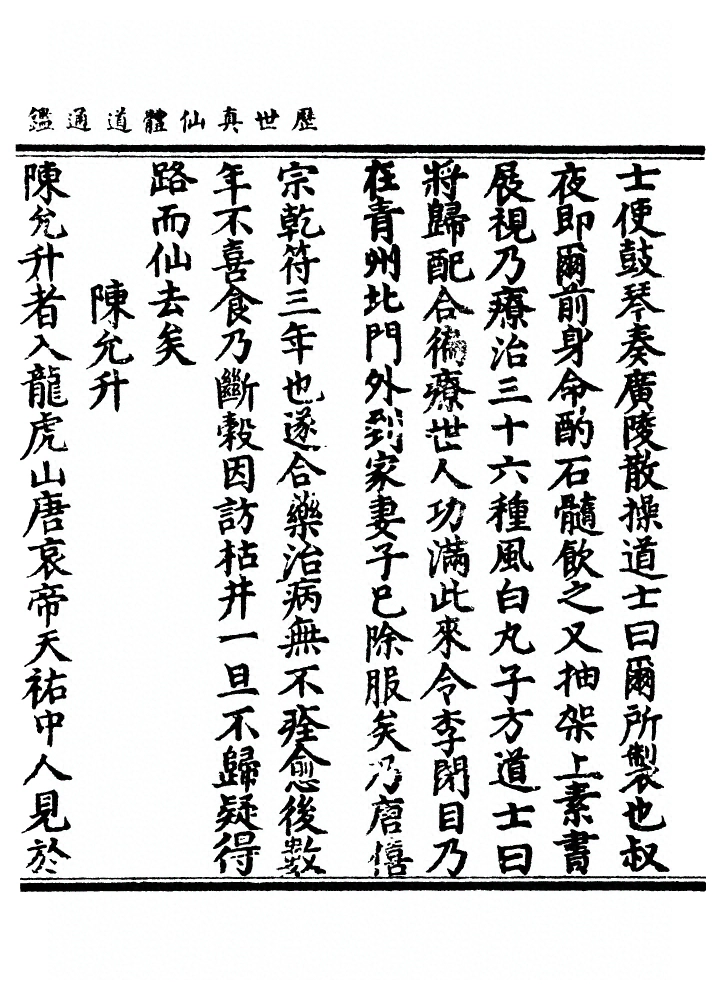 歷世真仙體道通鑑
士使鼓琴奏廣陵散操道士曰爾所製也叔
夜即爾前身命酌石髓飲之又抽架上素書
展視乃療治三十六種風白丸子方道士曰
將歸配合術療世人功滿此來令李閉目乃
在青州北門外到家妻子已除服矣乃唐僖
宗乾符三年也遂合藥治病無不痊愈後數
年不喜食乃斷穀因訪枯井一旦不歸疑得
路而仙去矣
陳允升
陳允升者入龍虎山唐哀帝天祐中人見於